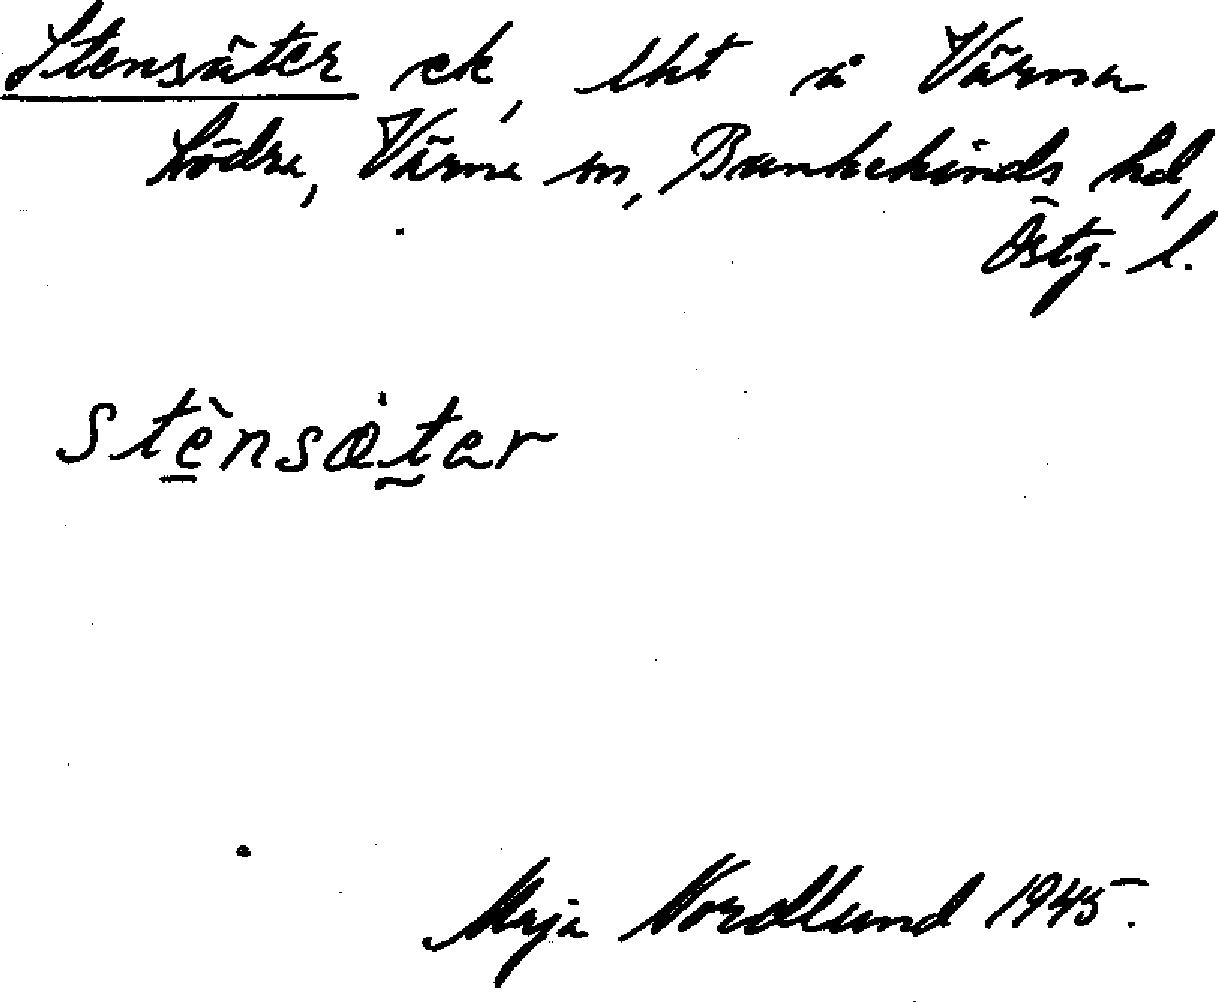 Stensäter ek, lht å Värna
Södra, Värna sn, Bankekinds hd,
Östg. l.
stènsætar
Maja Nordlund 1945.